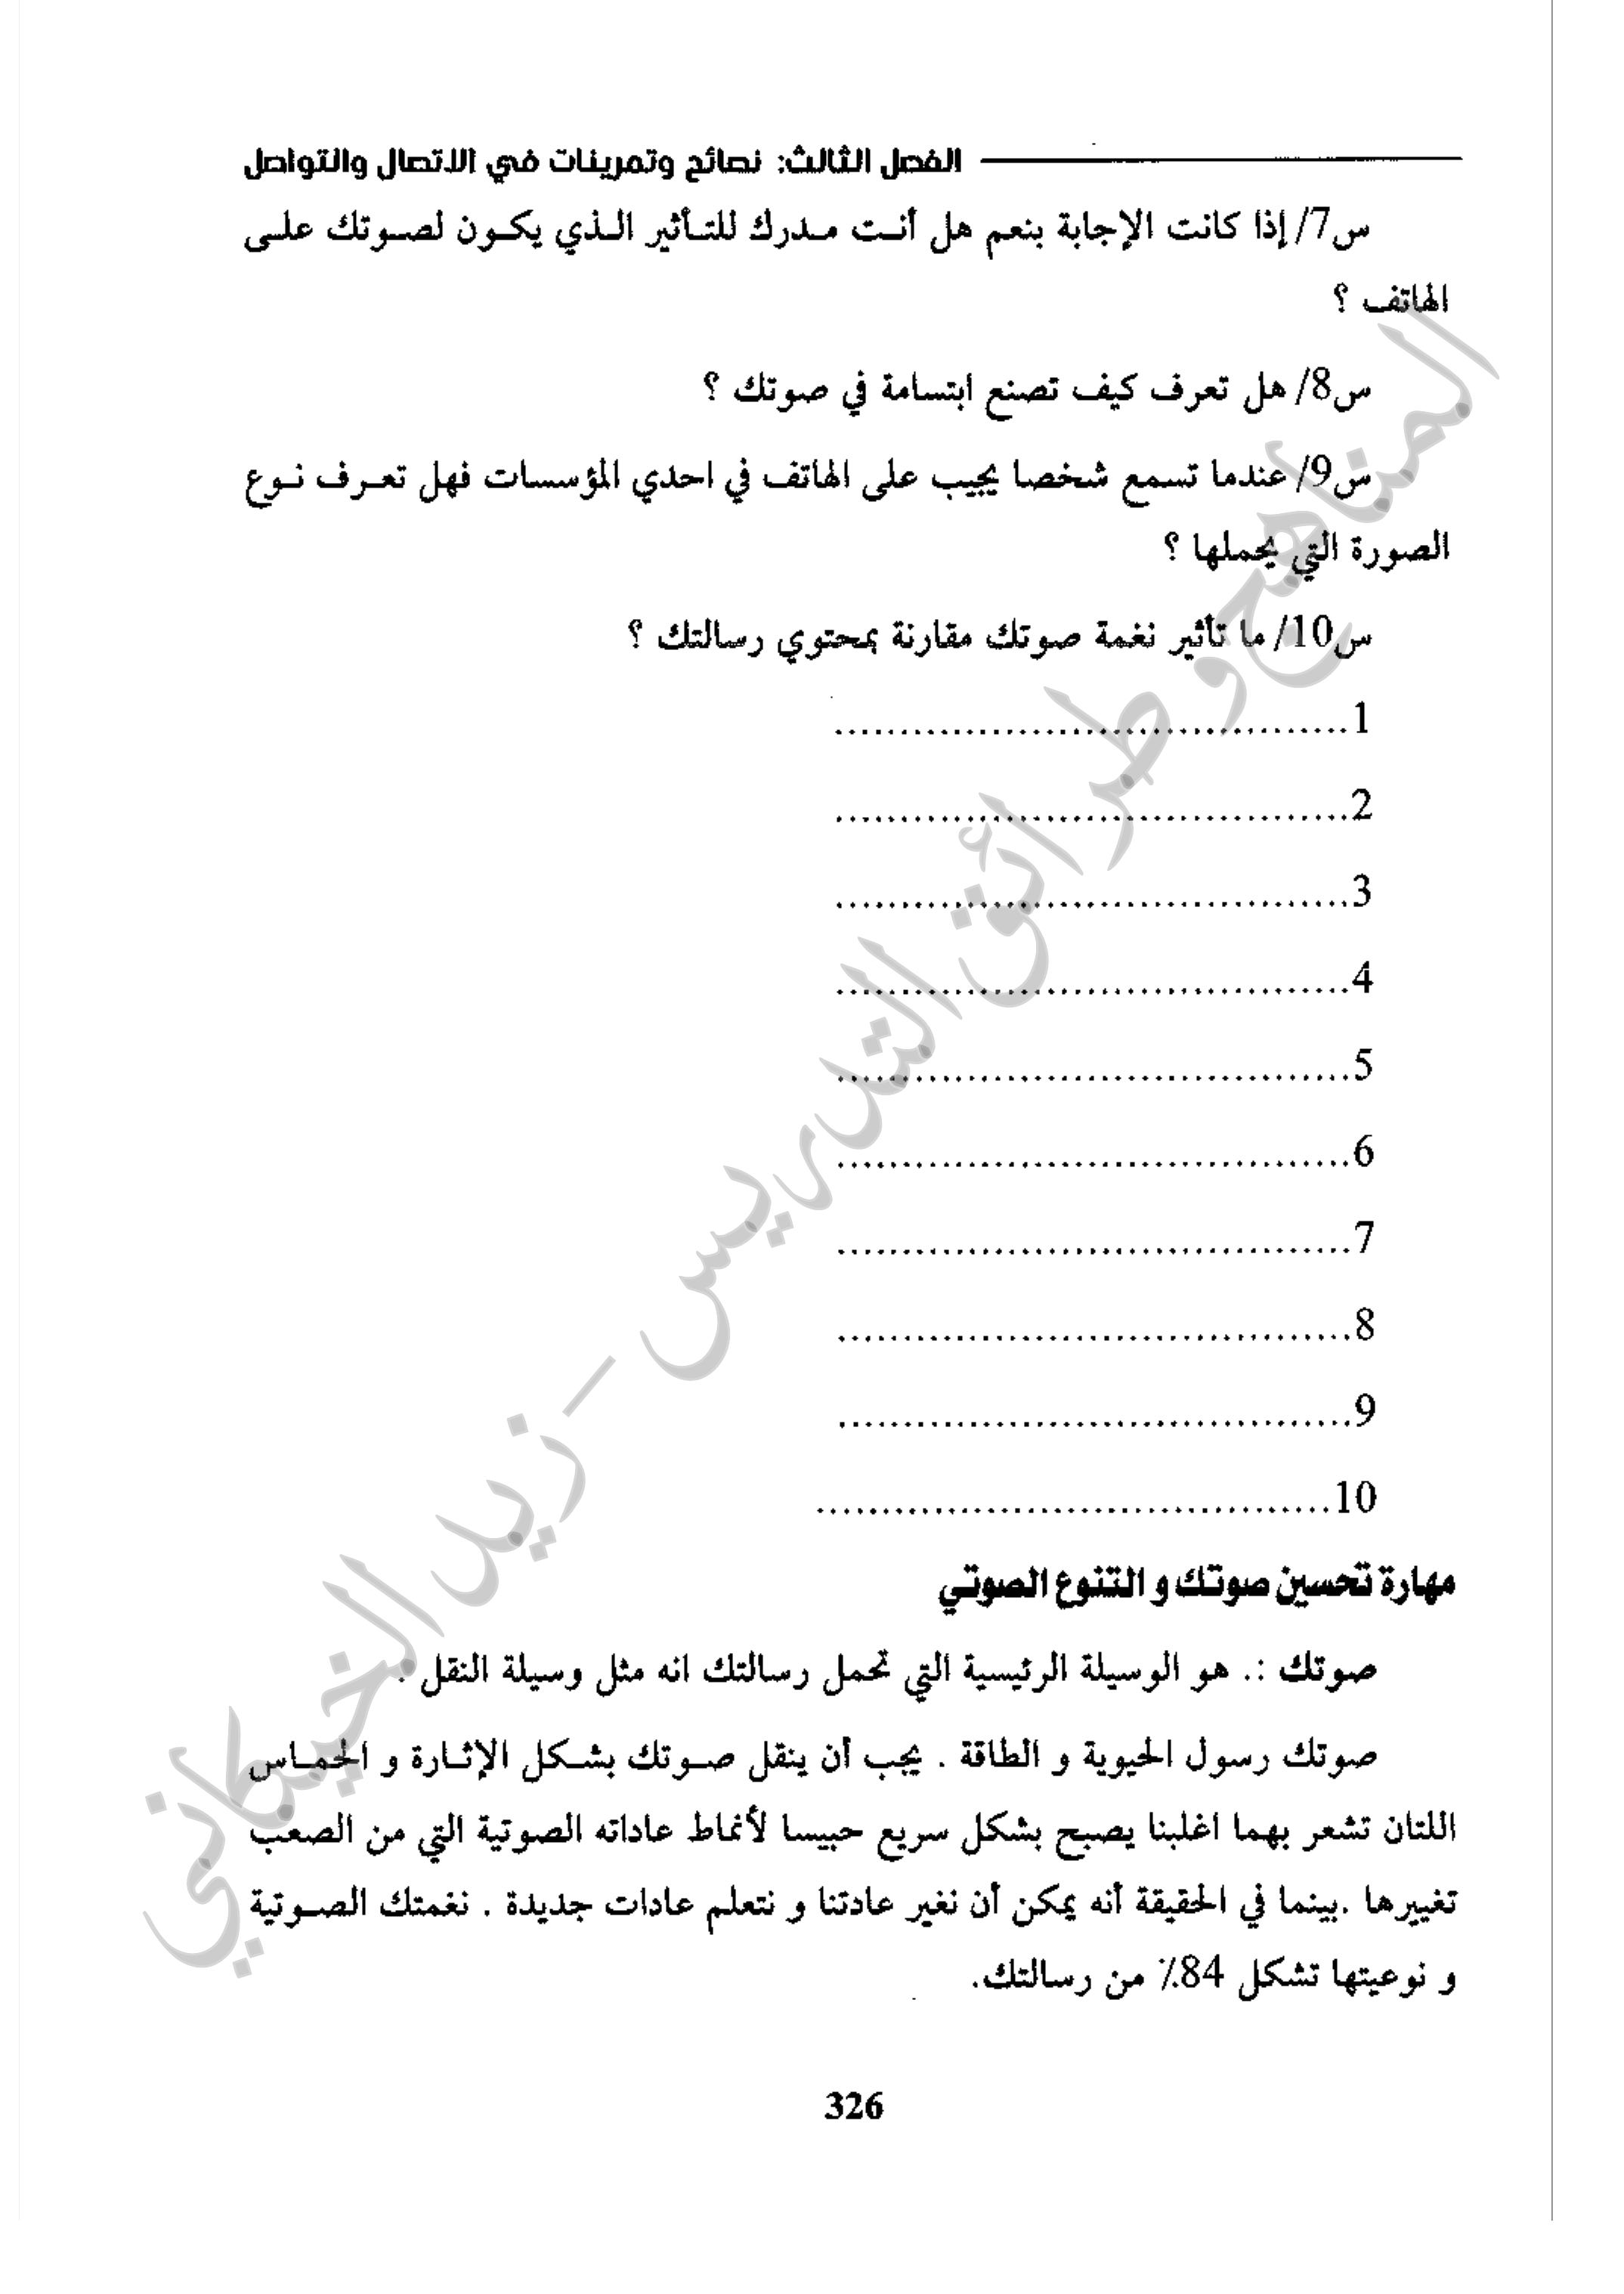 الفصل الثالث: نصائح وتمرينات في الاتصال والتواصل
س7/ إذا كانت الإجابة بنعم هل أنت مدرك للتأثير الذي يكون لصوتك على
الهاتف ؟
س8/ هل تعرف كيف تصنع ابتسامة في صوتك ؟
س9/ عندما تسمع شخصا يجيب على الهاتف في احدي المؤسسات فهل تعرف نوع
الصورة التي يحملها ؟
س10/ ما تأثير نغمة صوتك مقارنة بمحتوي رسالتك ؟
1.......................................
2.......................................
3.......................................
4.......................................
5.......................................
6.......................................
7.......................................
8.......................................
9.......................................
10.......................................
مهارة تحسين صوتك و التنوع الصوتي
صوتك :. هو الوسيلة الرئيسية التي تحمل رسالتك انه مثل وسيلة النقل .
صوتك رسول الحيوية و الطاقة . يجب أن ينقل صوتك بشكل الإثارة و الحماس
اللتان تشعر بهما اغلبنا يصبح بشكل سريع حبيسا لأنماط عاداته الصوتية التي من الصعب
تغييرها .بينما في الحقيقة أنه يمكن أن نغير عادتنا و نتعلم عادات جديدة . نغمتك الصوتية
و نوعيتها تشكل 84٪ من رسالتك.
326
المناهج وطرائق التدريس - زيد الخيكاني